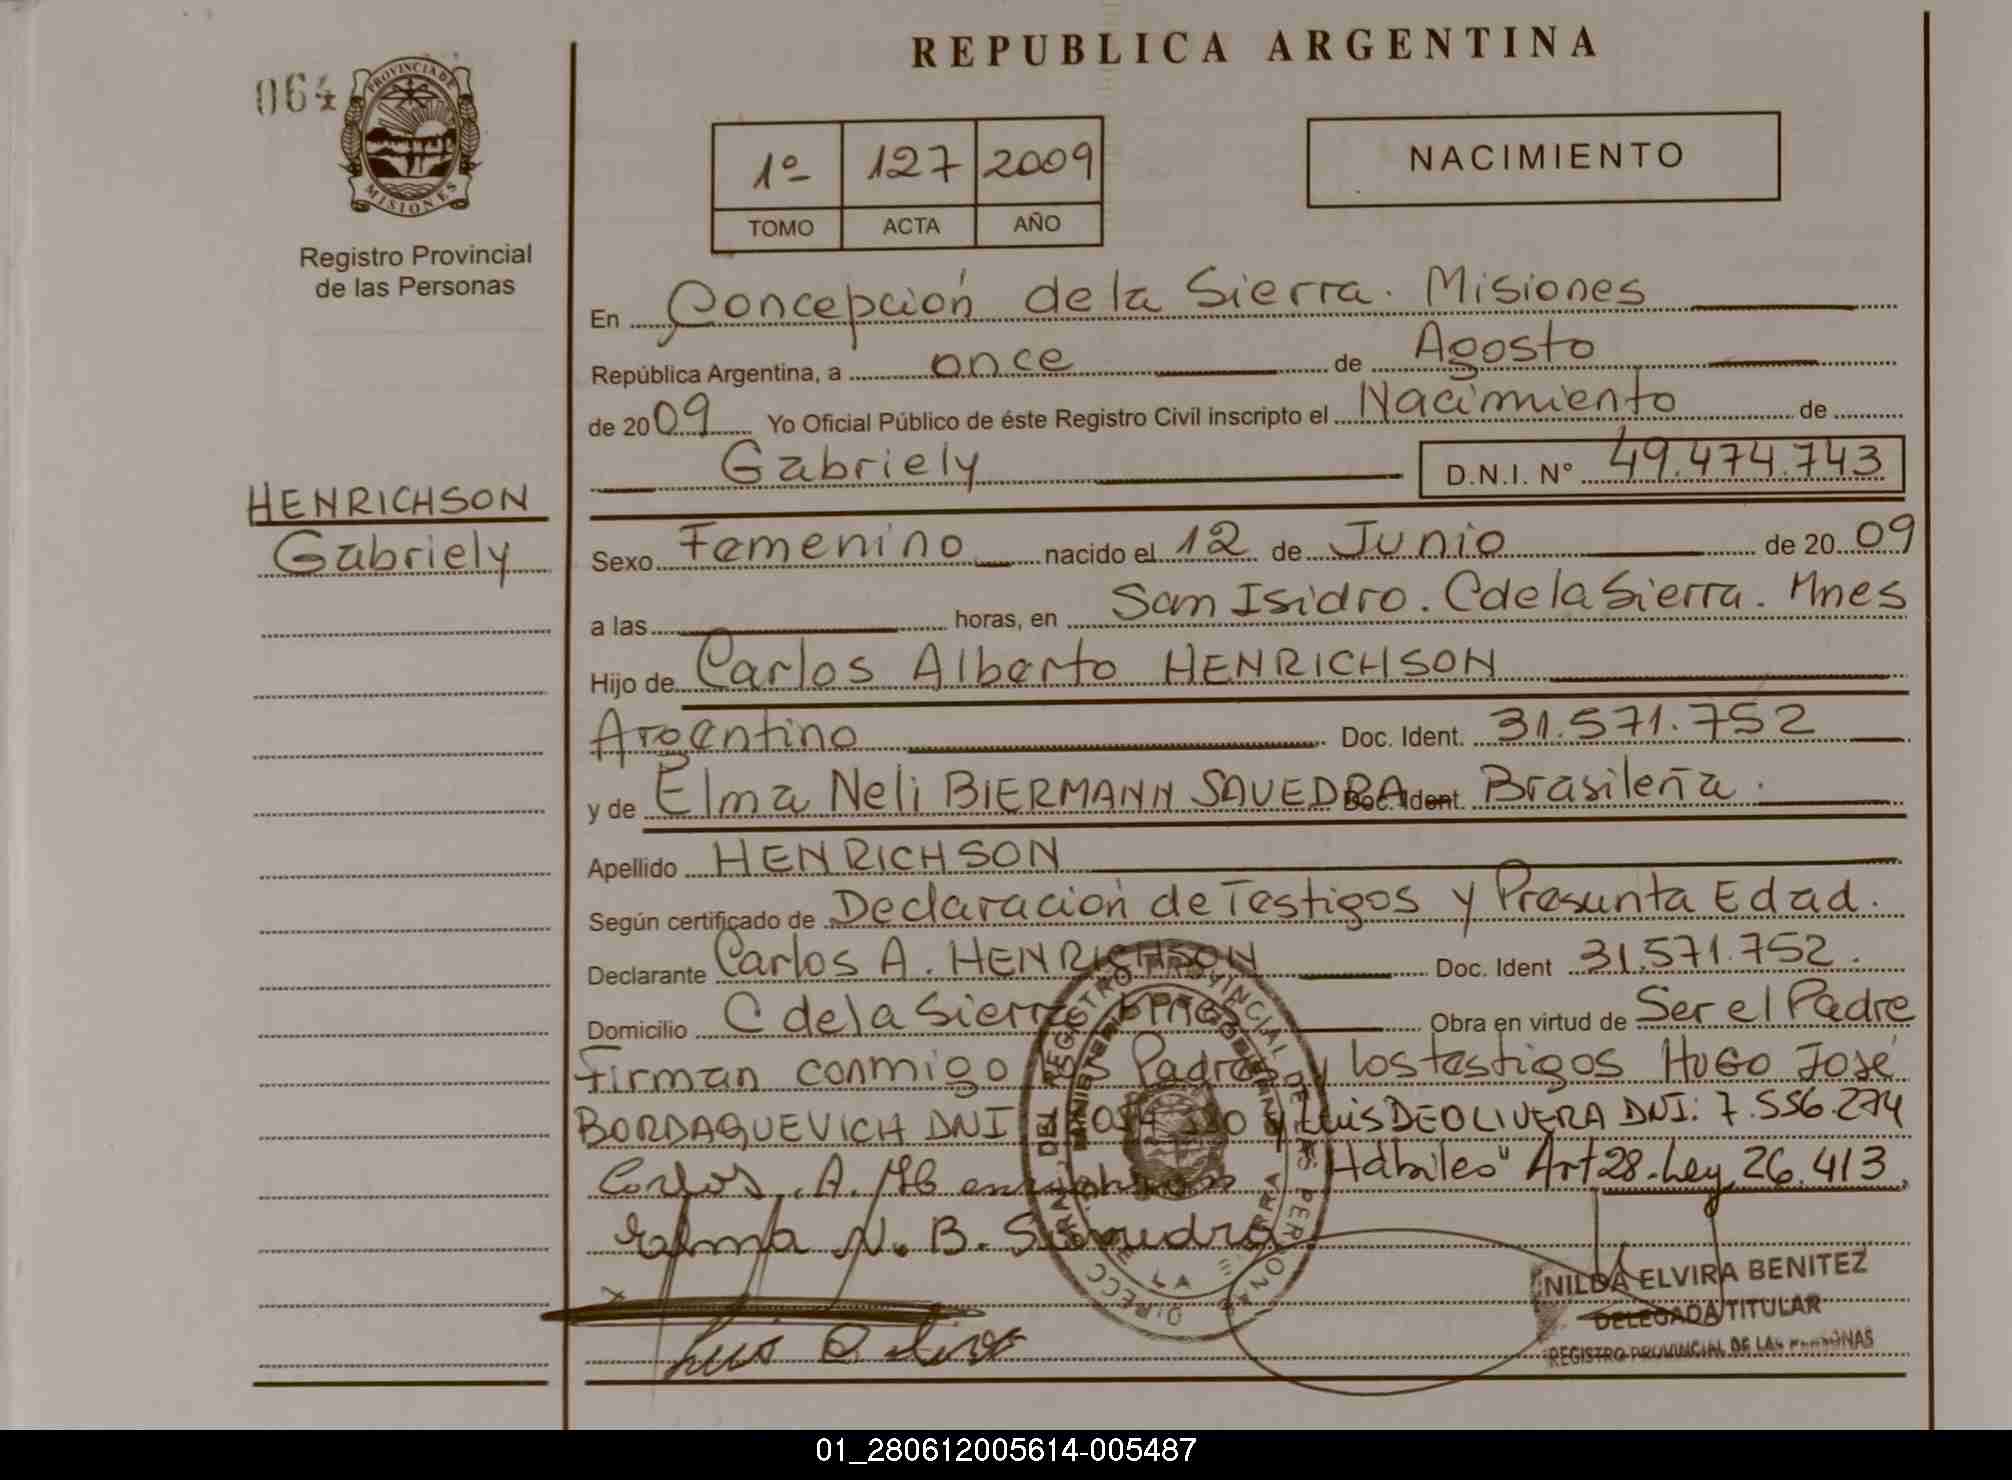 REPUBLICA ARGENTINA
064
PROVINCIA DE
MISIONES
Registro Provincial
de las Personas
1º 127 2009
TOMO ACTA AÑO
NACIMIENTO
En Concepción de la Sierra. Misiones
República Argentina, a once de Agosto
de 2009 Yo Oficial Público de éste Registro Civil inscripto el Nacimiento de
Gabriely D.N.I. Nº 49.474.743
HENRICHSON
Gabriely
Sexo Femenino nacido el 12 de Junio de 2009
a las horas, en San Isidro. C de la Sierra. Mnes
Hijo de Carlos Alberto HENRICHSON
Argentino Doc. Ident. 31.571.752
y de Elma Neli BIERMANN SAUEDRA Doc. Ident. Brasileña.
Apellido HENRICHSON
Según certificado de Declaración de Testigos y Presunta Edad.
Declarante Carlos A. HENRICHSON Doc. Ident 31.571.752.
Domicilio C de la Sierra Obra en virtud de Ser el Padre
Firman conmigo los Padres y los testigos HUGO José
BORDAQUEVICH DNI y Luis DE OLIVERA DNI: 7.556.274
Carlos A. Henrichson Hábiles" Art 28. Ley 26.413
Elma N. B. Sauedra
NILDA ELVIRA BENITEZ
DELEGADA TITULAR
REGISTRO PROVINCIAL DE LAS PERSONAS
01_280612005614-005487